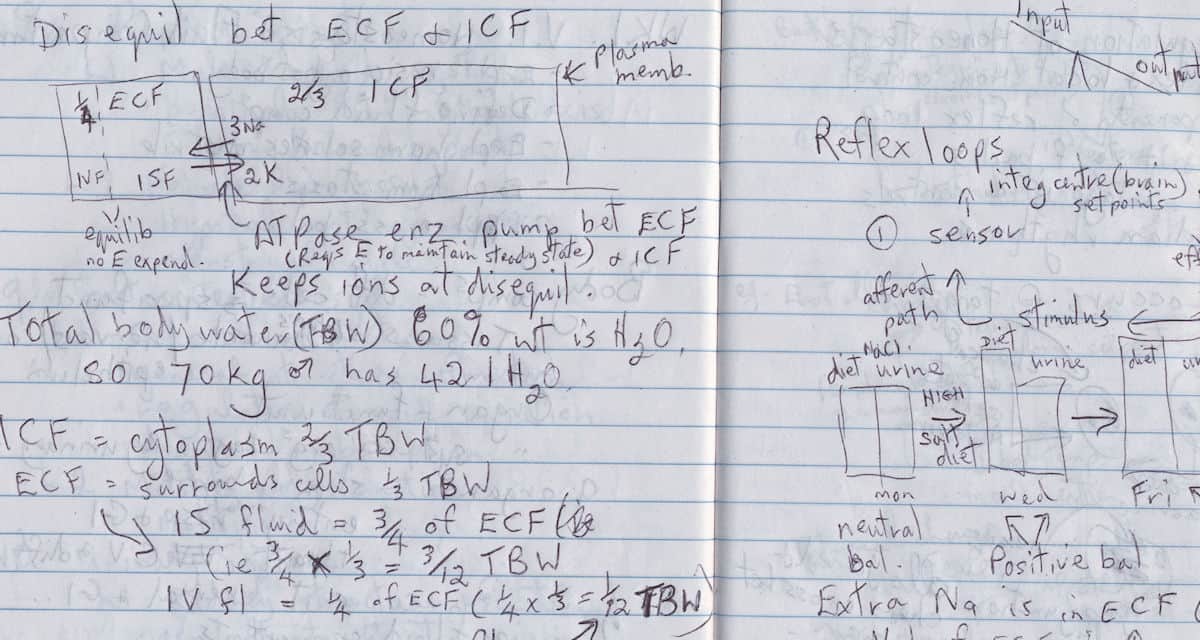 Disequil bet ECF & ICF
plasma
memb.
1/4 ECF
2/3 ICF
3Na
ISF
2K
equilib
no E expend.
ATPase enz. pump bet ECF
(Reqs E to maintain steady state) & ICF
Keeps ions at disequil.
Total body water (TBW) 60% wt is H2O,
so 70kg ♂ has 42 l H2O.
ICF = cytoplasm 2/3 TBW
ECF = surrounds cells 1/3 TBW
IS fluid = 3/4 of ECF
(ie 3/4 x 1/3 = 3/12 TBW
IV fl = 1/4 of ECF (1/4 x 1/3 = 1/12 TBW)
Input
output
Reflex loops
integ centre (brain)
set points
① sensor
afferent
path
stimulus
NaCl.
diet urine
HIGH
salt
diet
Diet
urine
diet
mon
Wed
Fri
neutral
bal.
Positive bal
Extra Na is in ECF